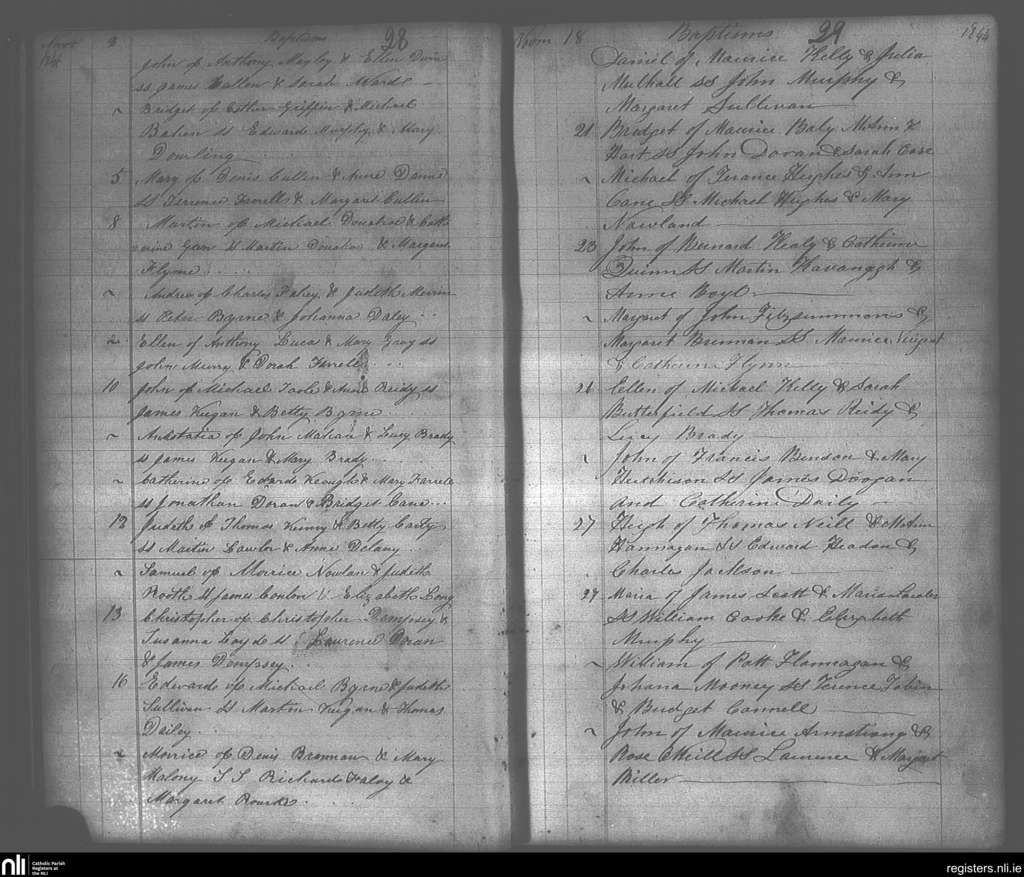 Novr 3 Baptisms 28
1844
John of Anthony & Ellen
ss James & Sarah Ward
~ Bridget of Esther Griffin & Michael
ss Edward Murphy & Mary
Dowling
5 Mary of Denis Cullen & Anne
ss Terrence Farrell & Margaret Cullen
8 Martin of Michael Donahoe & Cath
erine ss Martin Donahoe & Margaret
Flynne
~ Andrew of Charles Fahey & Judith
ss Peter Byrne & Johanna Daley
~ Ellen of Anthony Luca & Mary Gray ss
John Murry & Dorah Farrell
10 John of Michael Toole & Anne Reidy ss
James Keegan & Betty Byrne
~ Anastatia of John & Lucy Brady
ss James Keegan & Mary Brady
~ Catherine of Edward Keough & Mary Farrell
ss Jonathan Doran & Bridget Cane
12 Judith of Thomas & Betty Carty
ss Martin Lawlor & Anne Delany
~ Samuel of Morrice Nowlan & Judith
ss James Conlon & Elizabeth Long
13 Christopher of Christopher Dempsey &
Susanna ss Laurence Doran
& James Dempsey
16 Edward of Michael Byrne & Judith
Sullivan ss Martin Keegan & Thomas
Dailey
~ Morrice of Denis Brennan & Mary
Malony S S Richard &
Margaret Rourke
From 18 Baptisms 29 1844
Daniel of Maurice Kelly & Julia
Mulhall ss John Murphy &
Margaret Sullivan
21 Bridget of Maurice Daly
Hart ss John Doran & Sarah Case
~ Michael of Terance Hughes & Ann
Cane SS Michael Hughes & Mary
Nowland
23 John of Bernard Healy & Catherine
Quinn ss Martin Kavanagh &
Anne Boyl
~ Margret of John Fitzsimmons &
Margaret Brennan SS Maurice
& Catherine Flynn
24 Ellen of Michael Kelly & Sarah
Butterfield SS Thomas Reidy &
Lucy Brady
~ John of Francis Benson & Mary
Hutchison SS James Doogan
and Catherin Daily
27 Hugh of Thomas Neill &
Hannagan SS Edward Headon &
Charles Jackson
27 Maria of James Scott & Maria Lawler
SS William Cooke & Elizabeth
Murphy
~ William of Patt Flannagan &
Johana Mooney SS Terence Tobin
& Bridget Connell
~ John of Maurice Armstrong &
Rose O Neill SS Laurence & Margret
Miller
nli Catholic Parish
Registers at
the NLI
registers.nli.ie